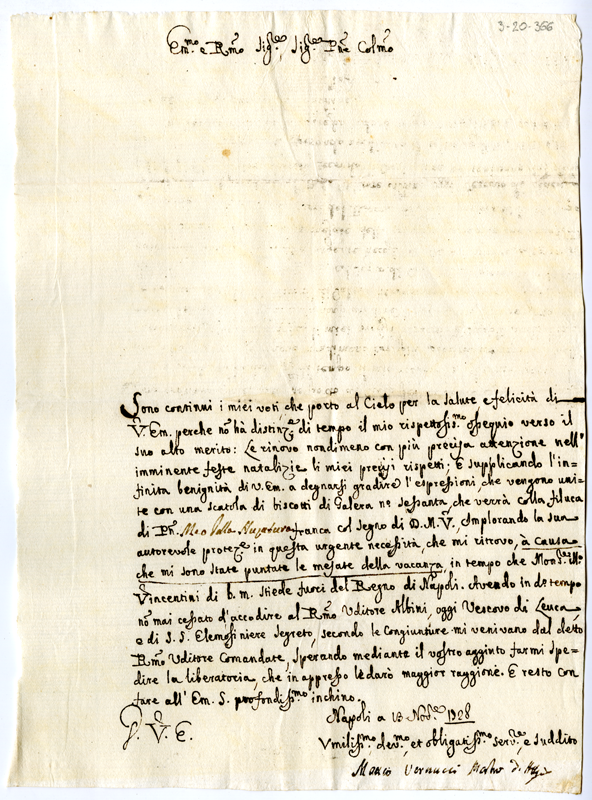 3-20-366
Em.mo e Rm̃o Sig.re, Sig.re Pñe Colm̃o
Sono continui i miei voti, che porto al Cielo per la salute e felicità di
V. Em. perche nõ hà distinz.e di tempo il mio rispettosis.mo osequio verso il
suo alto merito: Le rinovo nondimeno con più precisa attenzione nell'
imminente feste natalizie li miei precisi rispetti: E supplicando l'in=
finita benignità di V. Em. a degnarsi gradire l'espressioni che vengono uni=
te con una scatola di biscotti di Galera n.o sessanta, che verrà colla filuca
di Pñ. franca col segno di D. M. V., Implorando la sua
autorevole protez.e in questa urgente necessità, che mi ritrovo, à causa
che mi sono state puntate le mesate della vacanza, in tempo che Mons.re Ill.mo
Vincentini di b. m. stiede fuori del Regno di Napoli. Avendo in d.o tempo
nõ mai cessato d'accodire al Rm̃o Uditore Albini, oggi Vescovo di Leuca,
e di S. S. Elemosiniere segreto, secondo le congiunture mi venivano dal detto
Rm̃o Uditore Comandate, sperando mediante il vostro aggiuto farmi spe=
dire la liberatoria, che in appresso le darò maggior raggione. E resto con
fare all' Em. S. profondiss.mo inchino.
Napoli a 13 Nov.re 1728
D. V. E.
Umiliss.mo, dev.mo, et obligatiss.mo serv.re, e suddito
Marco Vernucci